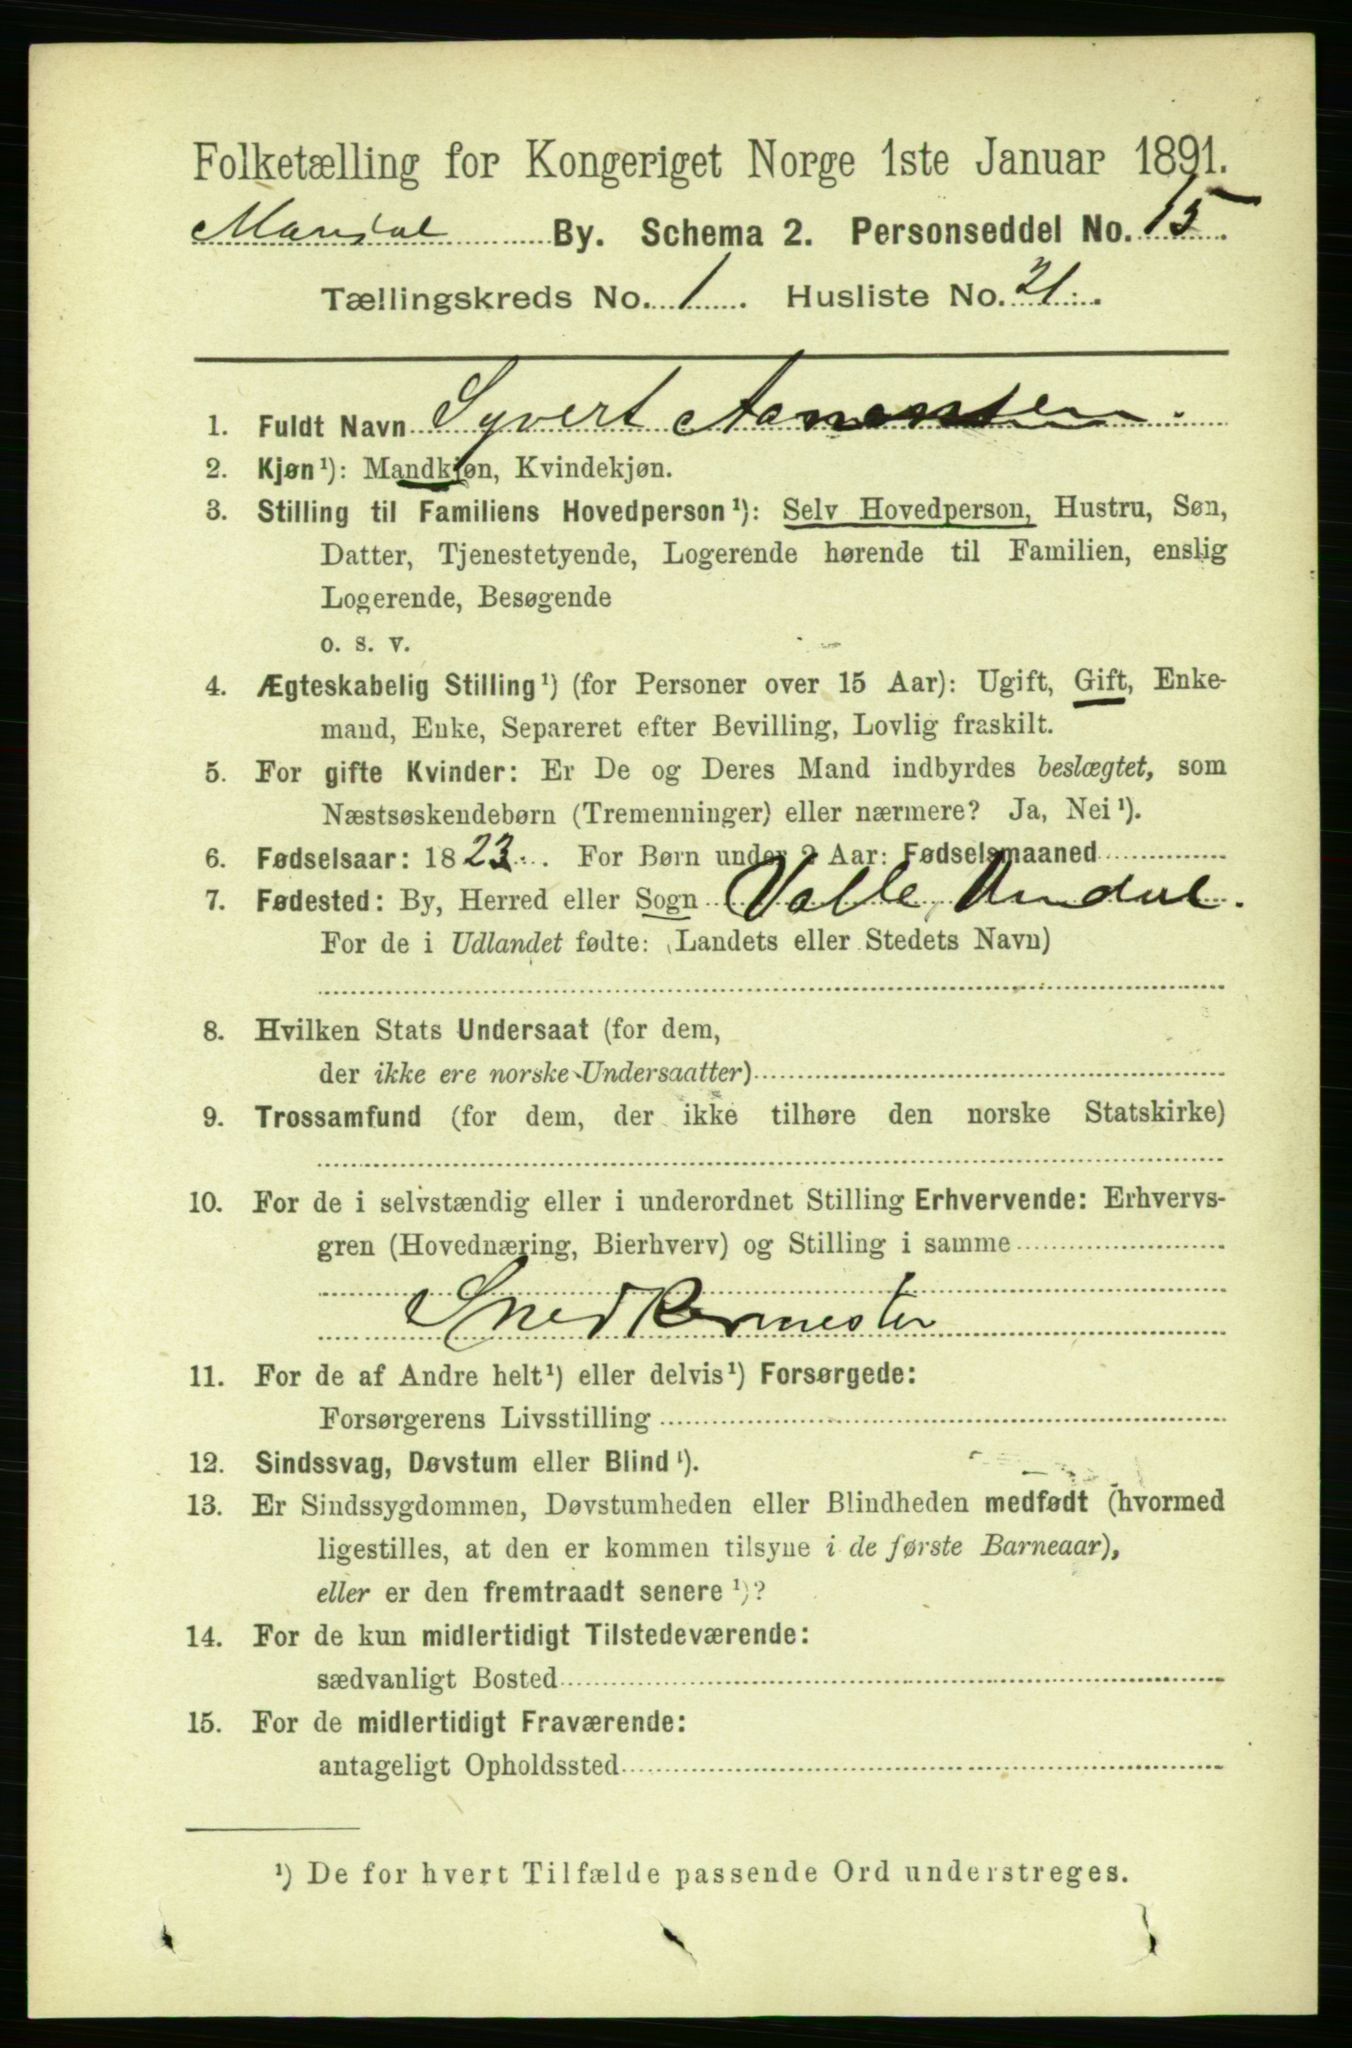 Folketælling for Kongeriget Norge 1ste Januar 1891.
Mandal By. Schema 2. Personseddel No. 15.
Tællingskreds No. 1. Husliste No. 21.
1. Fuldt Navn Syvert Aanensen.
2. Kjøn¹): Mandkjøn, Kvindekjøn.
3. Stilling til Familiens Hovedperson¹): Selv Hovedperson, Hustru, Søn,
Datter, Tjenestetyende, Logerende hørende til Familien, enslig
Logerende, Besøgende
o. s. v.
4. Ægteskabelig Stilling¹) (for Personer over 15 Aar): Ugift, Gift, Enke-
mand, Enke, Separeret efter Bevilling, Lovlig fraskilt.
5. For gifte Kvinder: Er De og Deres Mand indbyrdes beslægtet, som
Næstsøskendebørn (Tremenninger) eller nærmere? Ja, Nei¹).
6. Fødselsaar: 1823. For Børn under 2 Aar: Fødselsmaaned
7. Fødested: By, Herred eller Sogn Valle, Undal.
For de i Udlandet fødte: (Landets eller Stedets Navn)
8. Hvilken Stats Undersaat (for dem,
der ikke ere norske Undersaatter)
9. Trossamfund (for dem, der ikke tilhøre den norske Statskirke)
10. For de i selvstændig eller i underordnet Stilling Erhvervende: Erhvervs-
gren (Hovednæring, Bierhverv) og Stilling i samme
Snedkermester
11. For de af Andre helt¹) eller delvis¹) Forsørgede:
Forsørgerens Livsstilling
12. Sindssvag, Døvstum eller Blind¹).
13. Er Sindssygdommen, Døvstumheden eller Blindheden medfødt (hvormed
ligestilles, at den er kommen tilsyne i de første Barneaar),
eller er den fremtraadt senere¹)?
14. For de kun midlertidigt Tilstedeværende:
sædvanligt Bosted
15. For de midlertidigt Fraværende:
antageligt Opholdssted
¹) De for hvert Tilfælde passende Ord understreges.